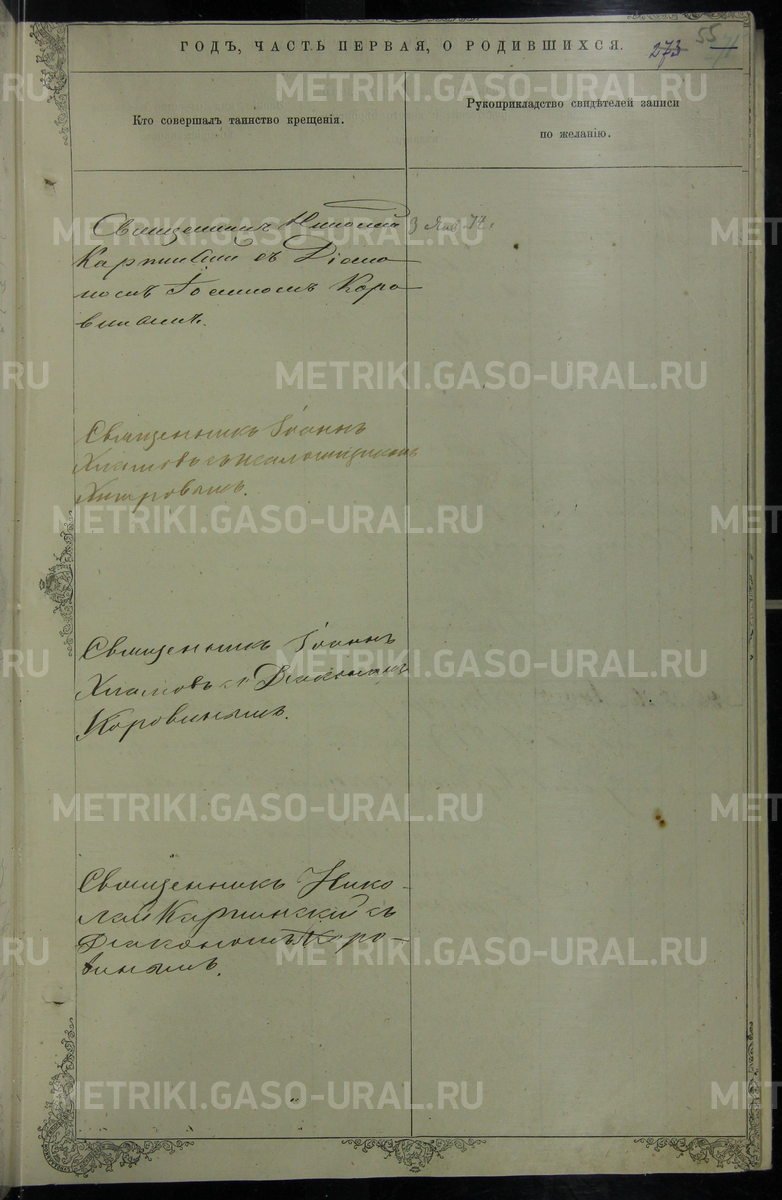 ГОДЪ, ЧАСТЬ ПЕРВАЯ, О РОДИВШИХСЯ.
273 55
Кто совершалъ таинство крещенія.
Рукоприкладство свидѣтелей записи
по желанію.
Священникъ Николай
Карпинскій съ Діако
номъ Іоанномъ Коро
винымъ.
Священникъ Іоаннъ
Хламовъ съ псаломщикомъ
Хитровымъ.
Священникъ Іоаннъ
Хламовъ съ Діакономъ
Коровинымъ.
Священникъ Нико-
лай Карпинскій съ
Діакономъ Коро-
винымъ.
METRIKI.GASO-URAL.RU